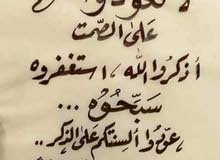 على الصمت
أذكروا الله ، استغفروه
سبّحوه ...
عوّدوا ألسنتكم على الذكر ..